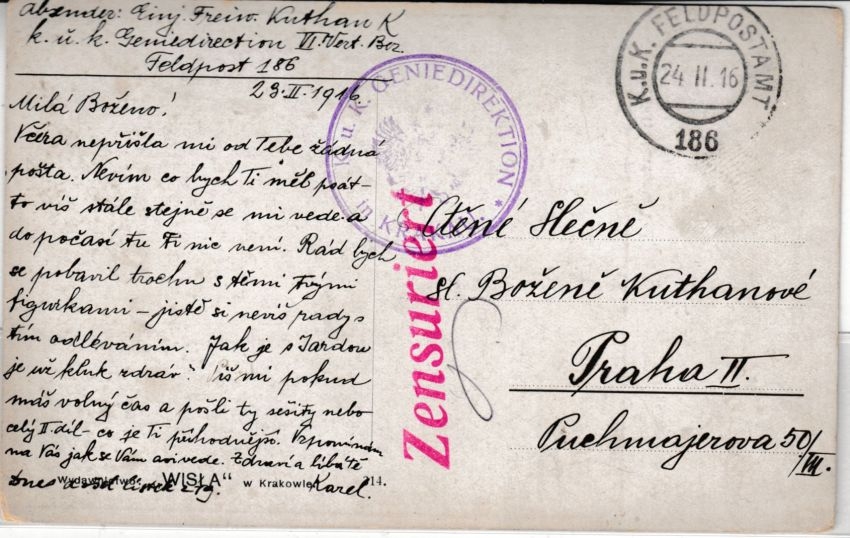 Absender: Einj. Freiw. Kuthan K
k. u. k. Geniedirection VI. Vert. Bez.
Feldpost 186
23.II.1916.
Milá Boženo!
Včera nepřišla mi od Tebe žádná
pošta. Nevím co bych Ti měl psát –
to víš stále stejně se mi vede a
do počasí tu Ti nic není. Rád bych
se pobavil trochu s těmi tvými
figurkami – jistě si nevíš rady s
tím odléváním. Jak je s Jardou
je už kluk zdráv? Piš mi pokud
máš volný čas a pošli ty sešity nebo
celý II. díl – co je Ti příhodnější. Vzpomínám
na Vás jak se Vám asi vede. Zdraví a líbá tě
Dnes Karel.
Wydawnictwo „WISŁA" w Krakowie 214.
K. u. K. GENIEDIREKTION
in KRAKAU.
K.u.K. FELDPOSTAMT
24 II. 16
186
Zensuriert
Ctěné Slečně
sl. Boženě Kuthanové
Praha II.
Puchmajerova 50/III.